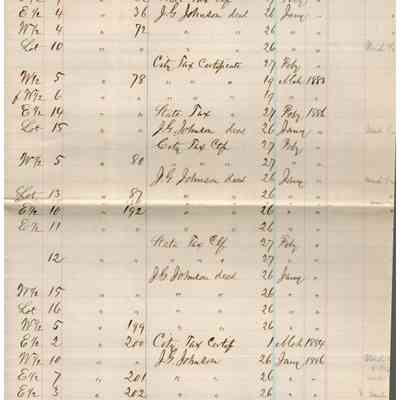 E½ 4 " 36 J.G. Johnson deed 26 Jany "
W½ 4 " 72 " " 26 " "
Lot 10 " " " 26 " "
City Tax Certificate 27 Feby "
W½ 5 " 78 " " 14 Mch 1883
W½ 6 " " " " "
E½ 14 " State Tax " 27 Feby 1886
Lot 15 " J.G. Johnson deed 26 Jany "
City Tax Ctf 27 Feby "
W½ 5 " 80 " " 27 " "
J.G. Johnson deed 26 Jany "
Lot 13 " 87 " " 26 " "
E½ 10 " 192 " " 26 " "
E½ 11 " " " 26 " "
State Tax Ctf 27 Feby "
12 " " " 27 " "
J.G. Johnson deed 26 Jany "
W½ 15 " " " 26 " "
Lot 16 " " " 26 " "
W½ 5 " 199 " " 26 " "
E½ 2 " 200 City Tax Certif 1 Mch 1884
W½ 10 " " J.G. Johnson 26 Jany 1886
E½ 7 " 201 " " 26 " "
E½ 3 " 202 " " 26 " "